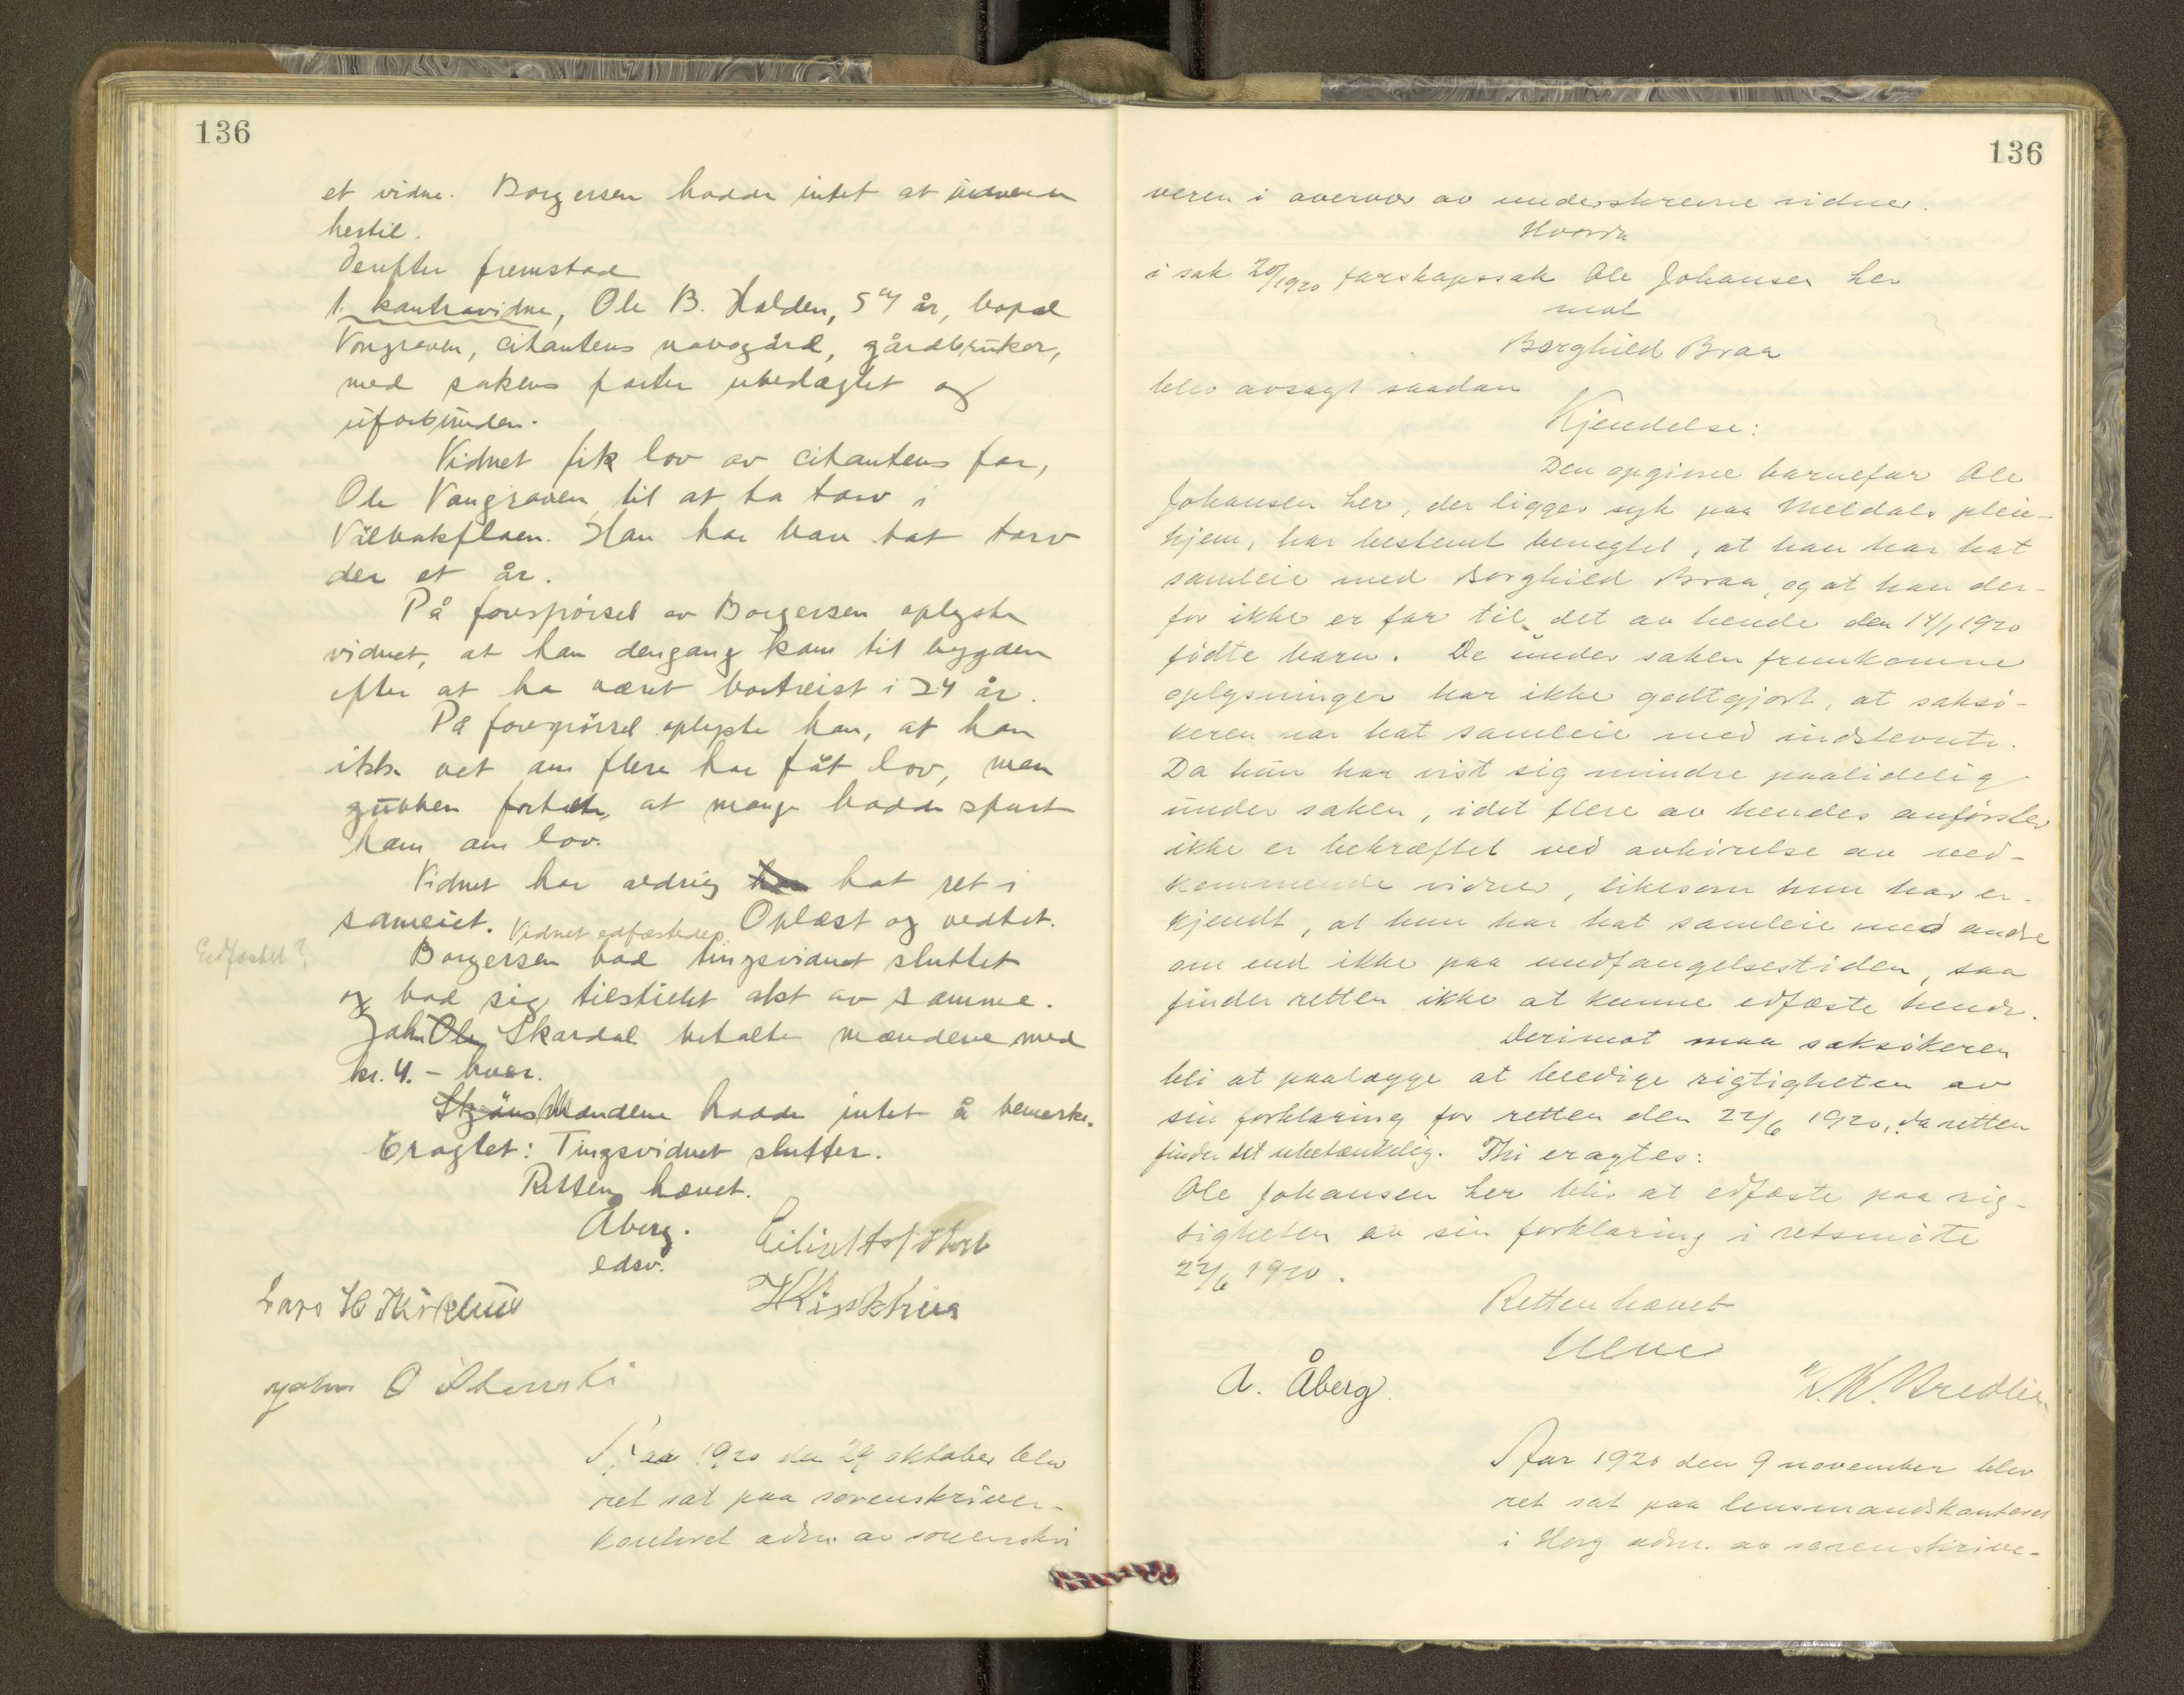 136
et vidne. Borgersen hadde intet at indvende
hertil.
Derefter fremstod
1. kontravidne, Ole B. Halden, 54 år, bopæl
Vongraven, citantens nabogård, gårdbruker,
med sakens parter ubeslægtet og
uforbunden.
Vidnet fik lov av citantens far,
Ole Vangraven til at ta torv i
Vålbakflaen. Han har bare tat torv
der et år.
På forespørsel av Borgersen oplyste
vidnet, at han dengang kom til bygden
efter at ha været bortreist i 24 år.
På forespørsel oplyste han, at han
ikke vet om flere har fåt lov, men
gubben fortalte, at mange hadde spurt
ham om lov.
Vidnet har aldrig har hat ret i
sameiet. Vidnet edfæstedes. Oplæst og vedtat.
Edfæstet?
Borgersen bad tingsvidnet sluttet
og bad sig tilstillet akt av samme.
John Ole Skardal betalte mændene med
kr. 4.- hver.
Mændene hadde intet å bemerke.
Eragtet: Tingsvidnet slutter.
Retten hævet.
Åberg.
edsv.
Lars H
John O
Aar 1920 den 29 oktober blev
ret sat paa sorenskriver-
kontoret adm. av sorenskri
136
veren i overvær av underskrevne vidner.
Hvorda
i sak 20/1920 farskapssak Ole Johansen Ler
mot
Borghild Braa
blev avsagt saadan
Kjendelse:
Den opgivne barnefar Ole
Johansen Ler, der ligger syk paa Meldals pleie-
hjem, har bestemt benegtet, at han har hat
samleie med Borghild Braa, og at han der-
for ikke er far til det av hende den 14/1 1920
fødte barn. De under saken fremkomne
oplysninger har ikke godtgjort, at saksø-
keren har hat samleie med indstevnte.
Da hun har vist sig mindre paalidelig
under saken, idet flere av hendes anførsler
ikke er bekræftet ved avhørelse av ved-
kommende vidner, likesom hun har er-
kjendt, at hun har hat samleie med andre
om end ikke paa undfangelsestiden, saa
finder retten ikke at kunne edfæste hende.
Derimot maa saksøkeren
bli at paalægge at beedige rigtigheten av
sin forklaring for retten den 22/6 1920, da retten
finder det ubetænkelig. Thi eragtes:
Ole Johansen Ler blir at edfæste paa rig-
tigheten av sin forklaring i retsmøte
22/6 1920.
Retten hævet
A. Åberg.
K. Bredli
Aar 1920 den 9 november blev
ret sat paa lensmandskontoret
i Horg adm. av sorenskrive-